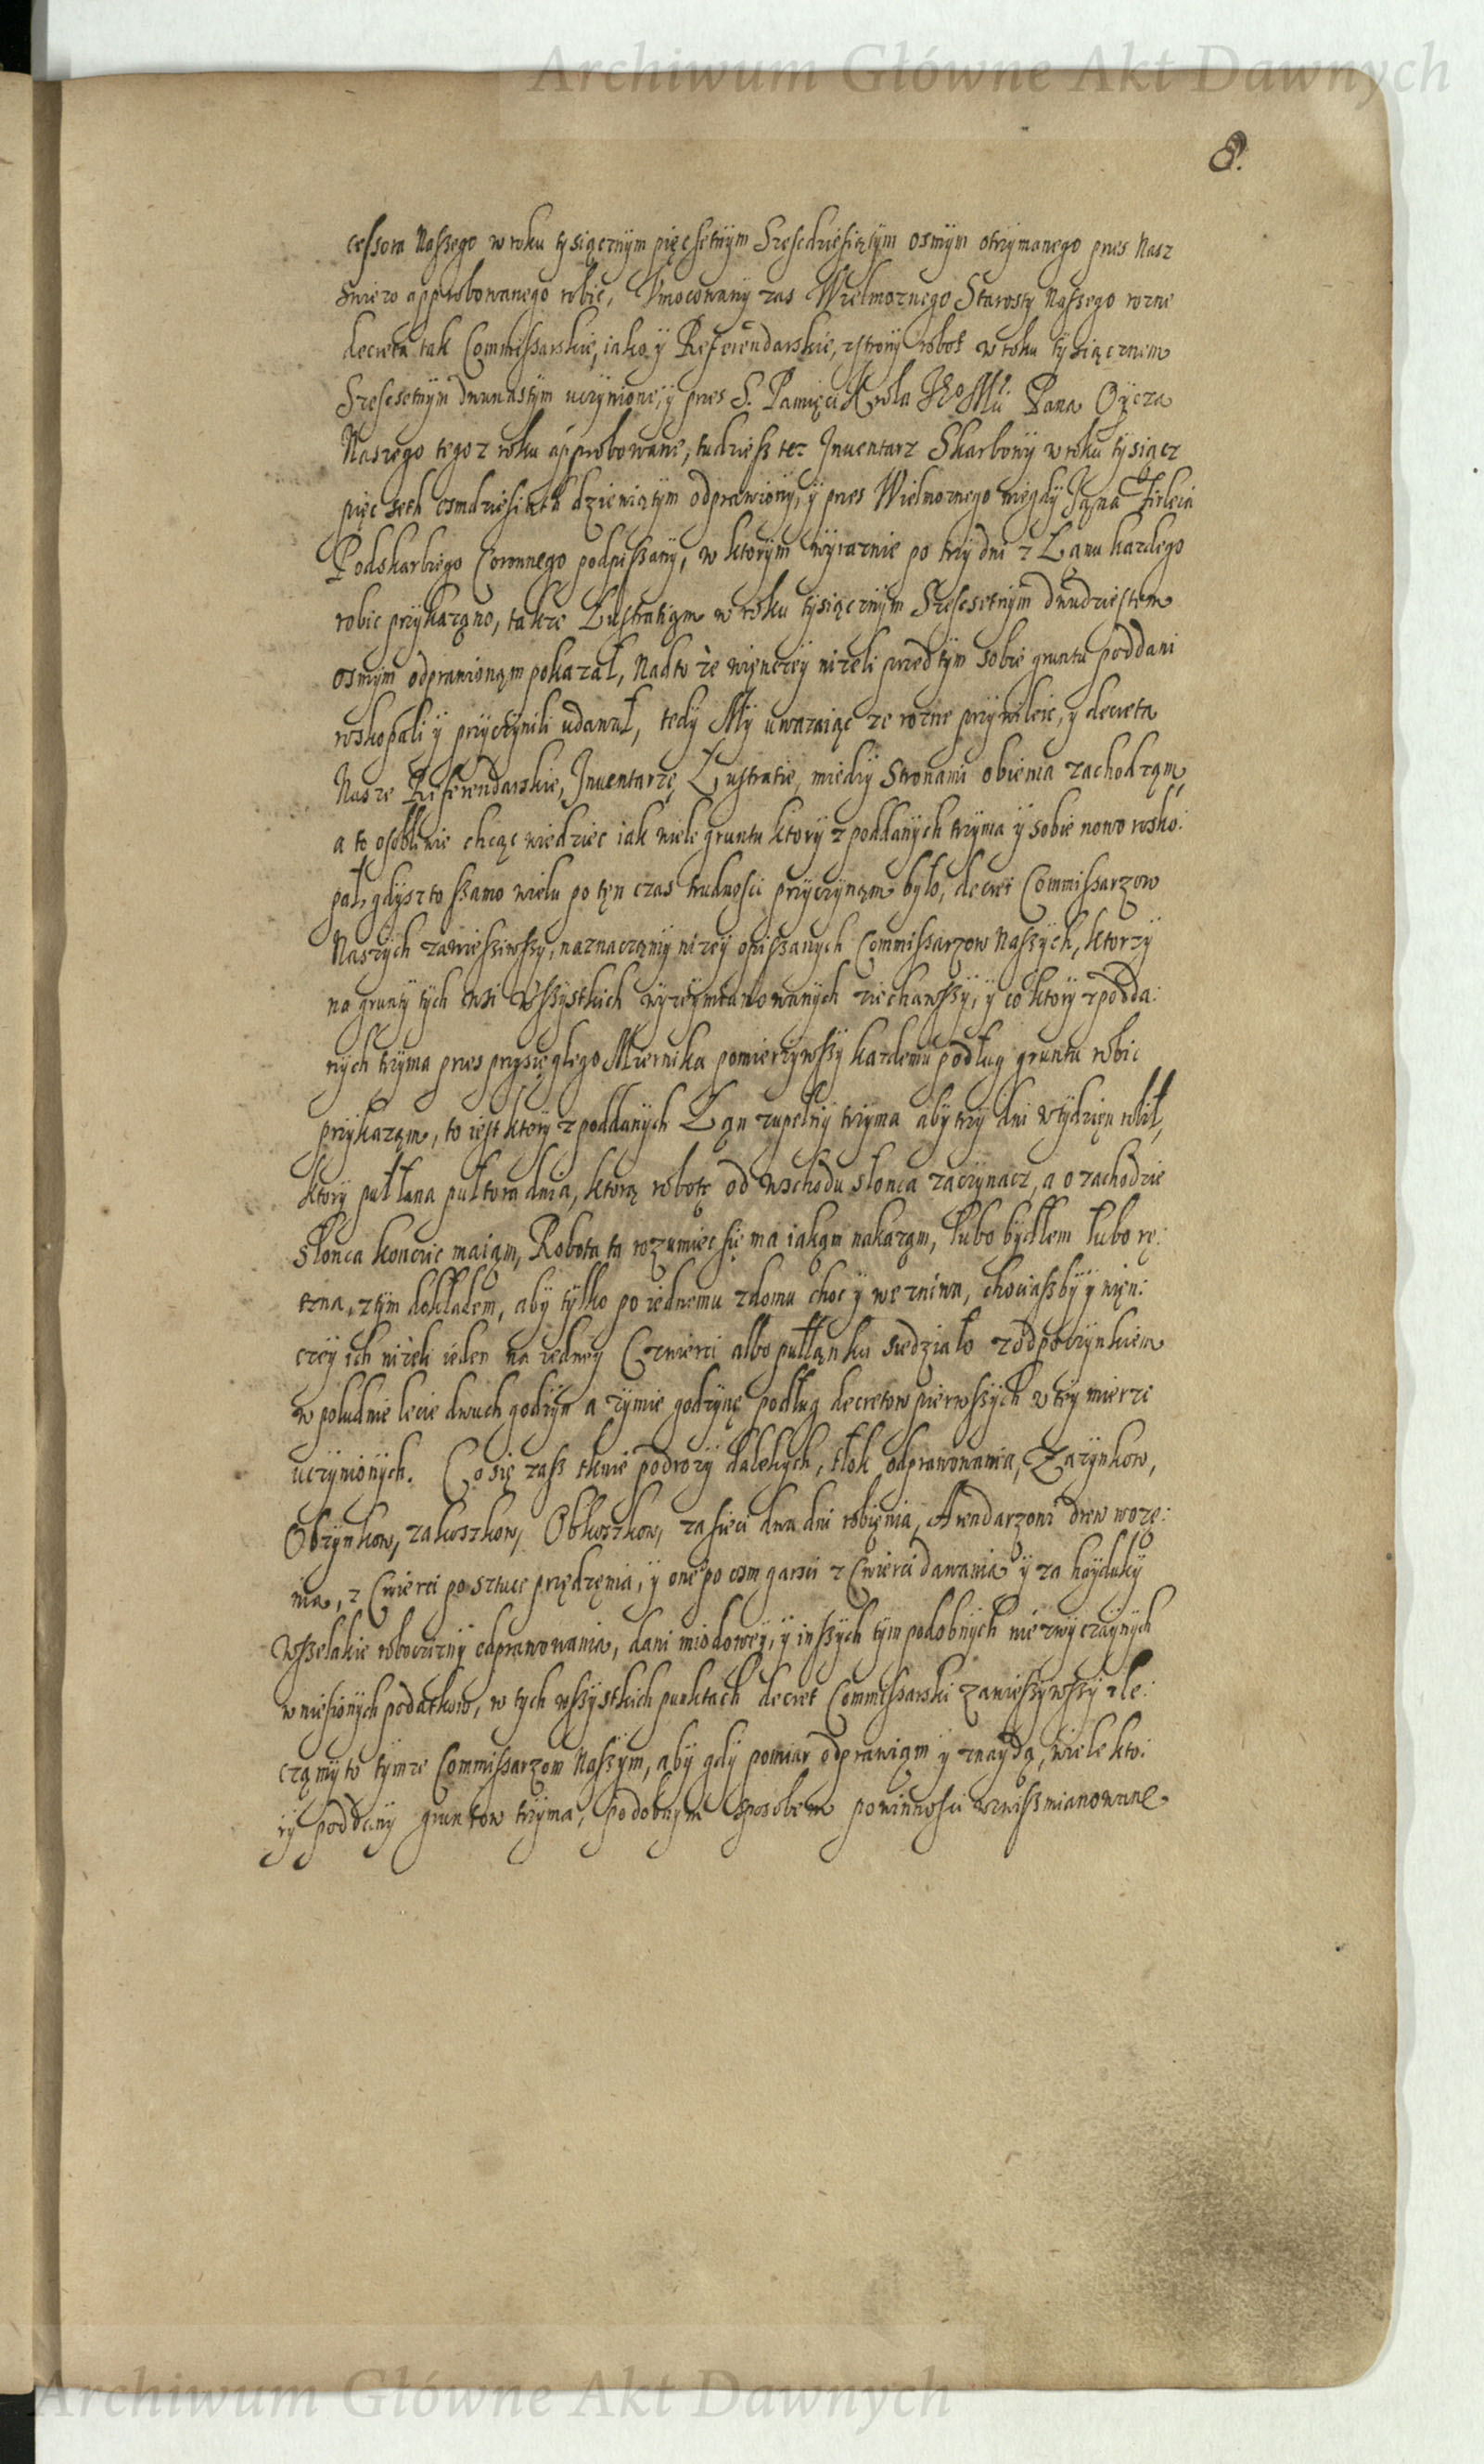 Archiwum Główne Akt Dawnych
8.
cessora Naszego w roku tysiącznym pięcsetnym Szescdziesiątym osmym otrzymanego przes Nasz
swiezo approbowanego robic, Umocowany zas Wielmoznego Starosty Naszego rozne
decreta tak Commissarskie, iako y Referendarskie, zstrony robot w roku tysiącznem
Szescsetnym dwunastym uczynione, y przes S. Pamięci Krola Jº Mci Pana Oycza
Naszego tegoz roku approbowane, tudziesz tez Inventarz Skarbowy w roku tysiącz
pięc seth osmdziesiath dzieviątym odprawiony, y przes Wielmoznego niegdy Jana Firleia
Podskarbiego Coronnego podpissany, w ktorym wyraznie po trzy dni z Łanu kazdego
robic przykazano, takze Lustratiąm w roku tysiącznym Szescsetnym dwudziestem
osmym odprawionąm pokazał, Nadto ze więnczey nizeli przedtym sobie gruntu poddani
roskopali y przyczynili udawał, tedy My uwazaiąc ze rozne przywileie, y decreta
Nasze Referendarskie, Inventarze, Lustratie, miedzy Stronami obiema zachodząm,
a to osobliwie chcąc wiedziec iak wiele gruntu ktory z poddanych trzyma y sobie nowo rosko:
pał, gdysz to szamo wielu po tęn czas trudnosci przyczynąm było, decret Commissarzow
Naszych zawiesiwszy, naznaczamy nizey opissanych Commissarzow Naszych, ktorzy
na grunty tych wsi wszystkich wyzeymianowanych ziechawszy, y co ktory z podda:
nych trzyma przes przysięgłego Miernika pomierzywszy kazdemu podług gruntu robic
przykaząm, to iest ktory z poddanych Łąn zupełny trzyma aby trzy dni w tydzięn robił,
ktory puł łana pułtora dnia, ktorą robotę od wschodu słonca zaczynacz, a o zachodzie
słonca konczic maiąm, Robota ta rozumiec się ma iakąm nakaząm, lubo bydłem lubo rę:
czna, z tym dokładem, aby tylko po iednemu z domu choc y we zniwa, chociaszby y więn:
czey ich nizeli ieden na iedney Czwierci albo pułłąnku siedziało z odpoczynkiem
w poludnie lecie dwuch godzyn a zymie godzynę podług decretow pierwszych w tey mierze
uczynionych. Co się zasz tknie podrozy dalekych, tłok odprawowania, Zazynkow,
Obzynkow, zakoszkow, Obkoszkow, za sieci dwa dni robięnia, Arendarzowi drew woze:
nia, z Cwierci po sztuce przędzęnia, y one po osm garsci z Cwierci dawania y za hayduky
wszelakie robocizny odprawowania, dani miodowey, y inszych tym podobnych niezwyczaynych
wniesionych podatkow, w tych wszystkich punktach decret Commissarski zawieszywszy zle:
czamy to tymze Commissarzom Naszym, aby gdy pomiar odprawiąm y znaydą, wiele kto:
ry poddany gruntow trzyma, podobnym sposobem powinnosci zwiszmianowane
Archiwum Główne Akt Dawnych